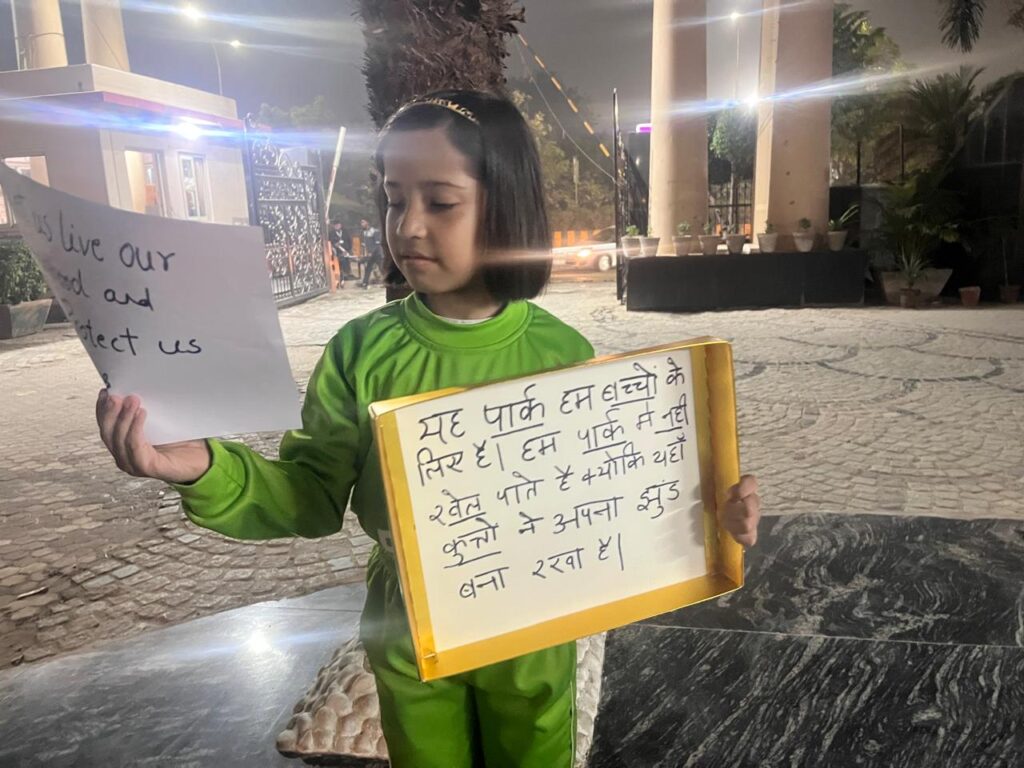 us live our
and
protect us
यह पार्क हम बच्चो के
लिए है। हम पार्क मे नही
खेल पाते है क्योकि यहाँ
कुत्तो ने अपना झुंड
बना रखा है।